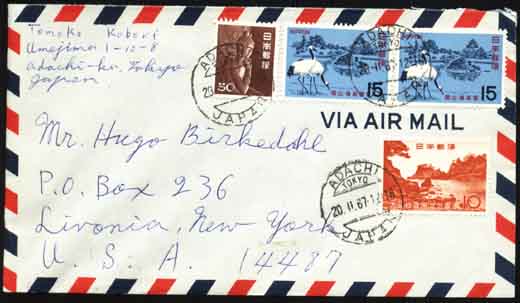 Tomoko Kobori
Umejima 1-10-8
Adachi-ku, Tokyo
Japan
日本郵便
50
日本郵便
15
日本郵便
15
ADACHI
JAPAN
ADACHI
VIA AIR MAIL
Mr. Hugo Birkedahl
P.O. Box 236
Livonia, New York
U. S. A. 14487
ADACHI
TOKYO
20.II.67
JAPAN
日本郵便
10